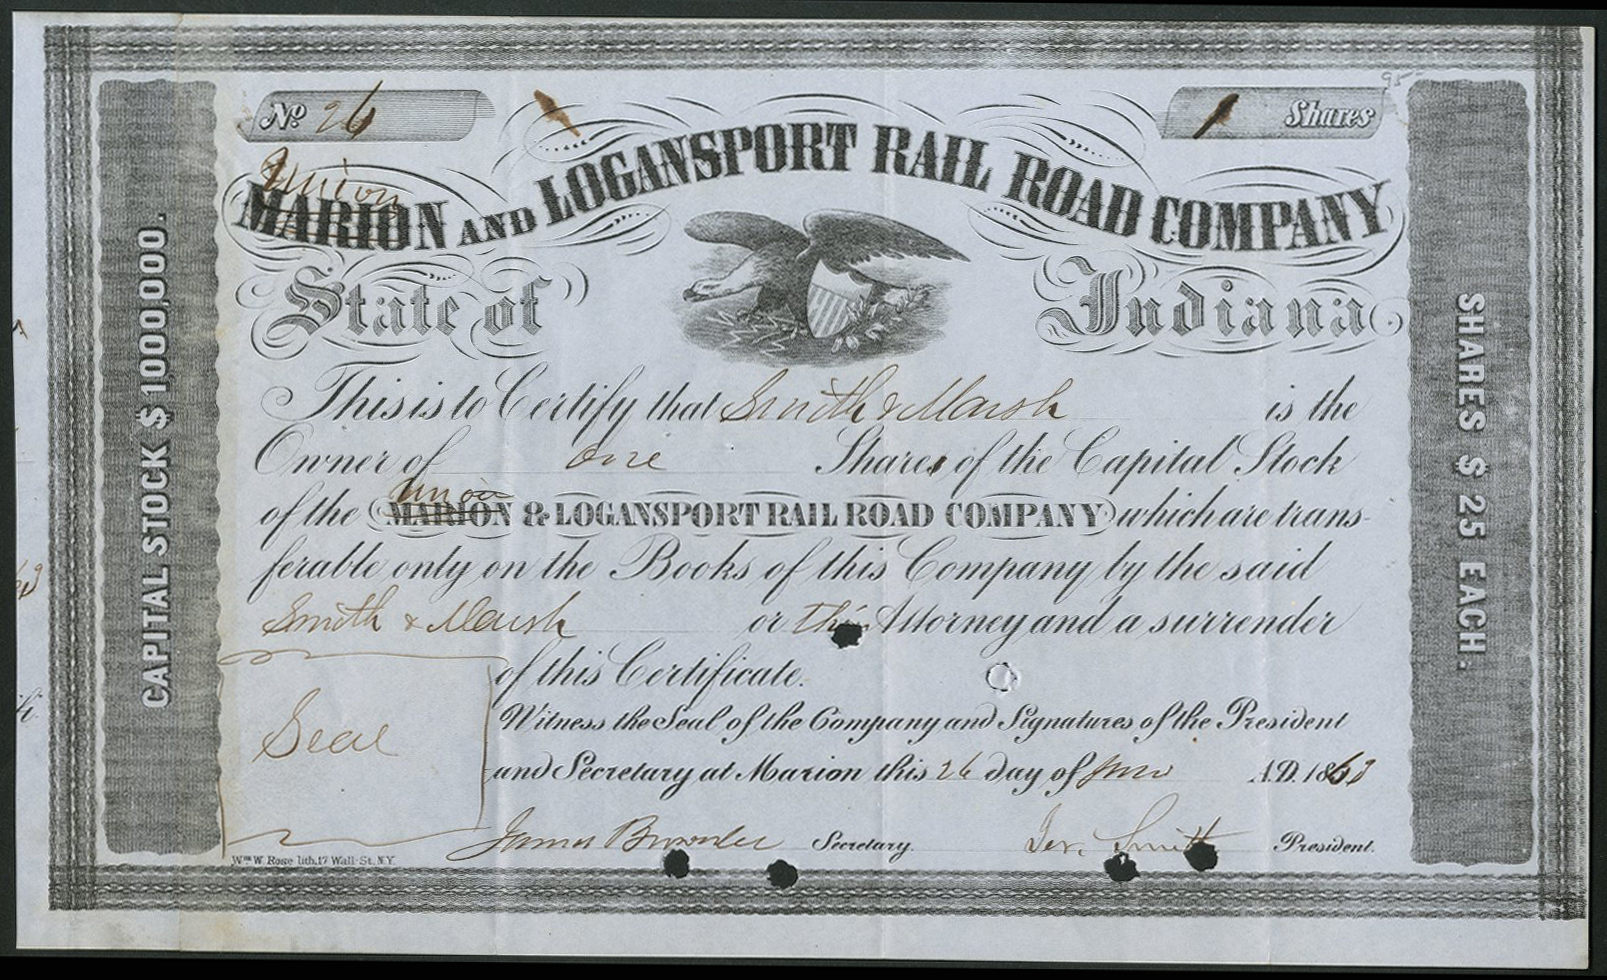 95
No. 26
1 Shares
Union
MARION AND LOGANSPORT RAIL ROAD COMPANY
State of Indiana
CAPITAL STOCK $ 1000,000.
SHARES $ 25 EACH.
This is to Certify that Smith & Marsh is the
Owner of one Shares of the Capital Stock
Union
of the MARION & LOGANSPORT RAIL ROAD COMPANY which are trans-
ferable only on the Books of this Company by the said
Smith & Marsh or their Attorney and a surrender
of this Certificate.
Seal
Witness the Seal of the Company and Signatures of the President
and Secretary at Marion this 26 day of June A.D. 1863
James Brownlee Secretary. Jer. Smith President.
Wm. W. Rose lith. 17 Wall St. N.Y.